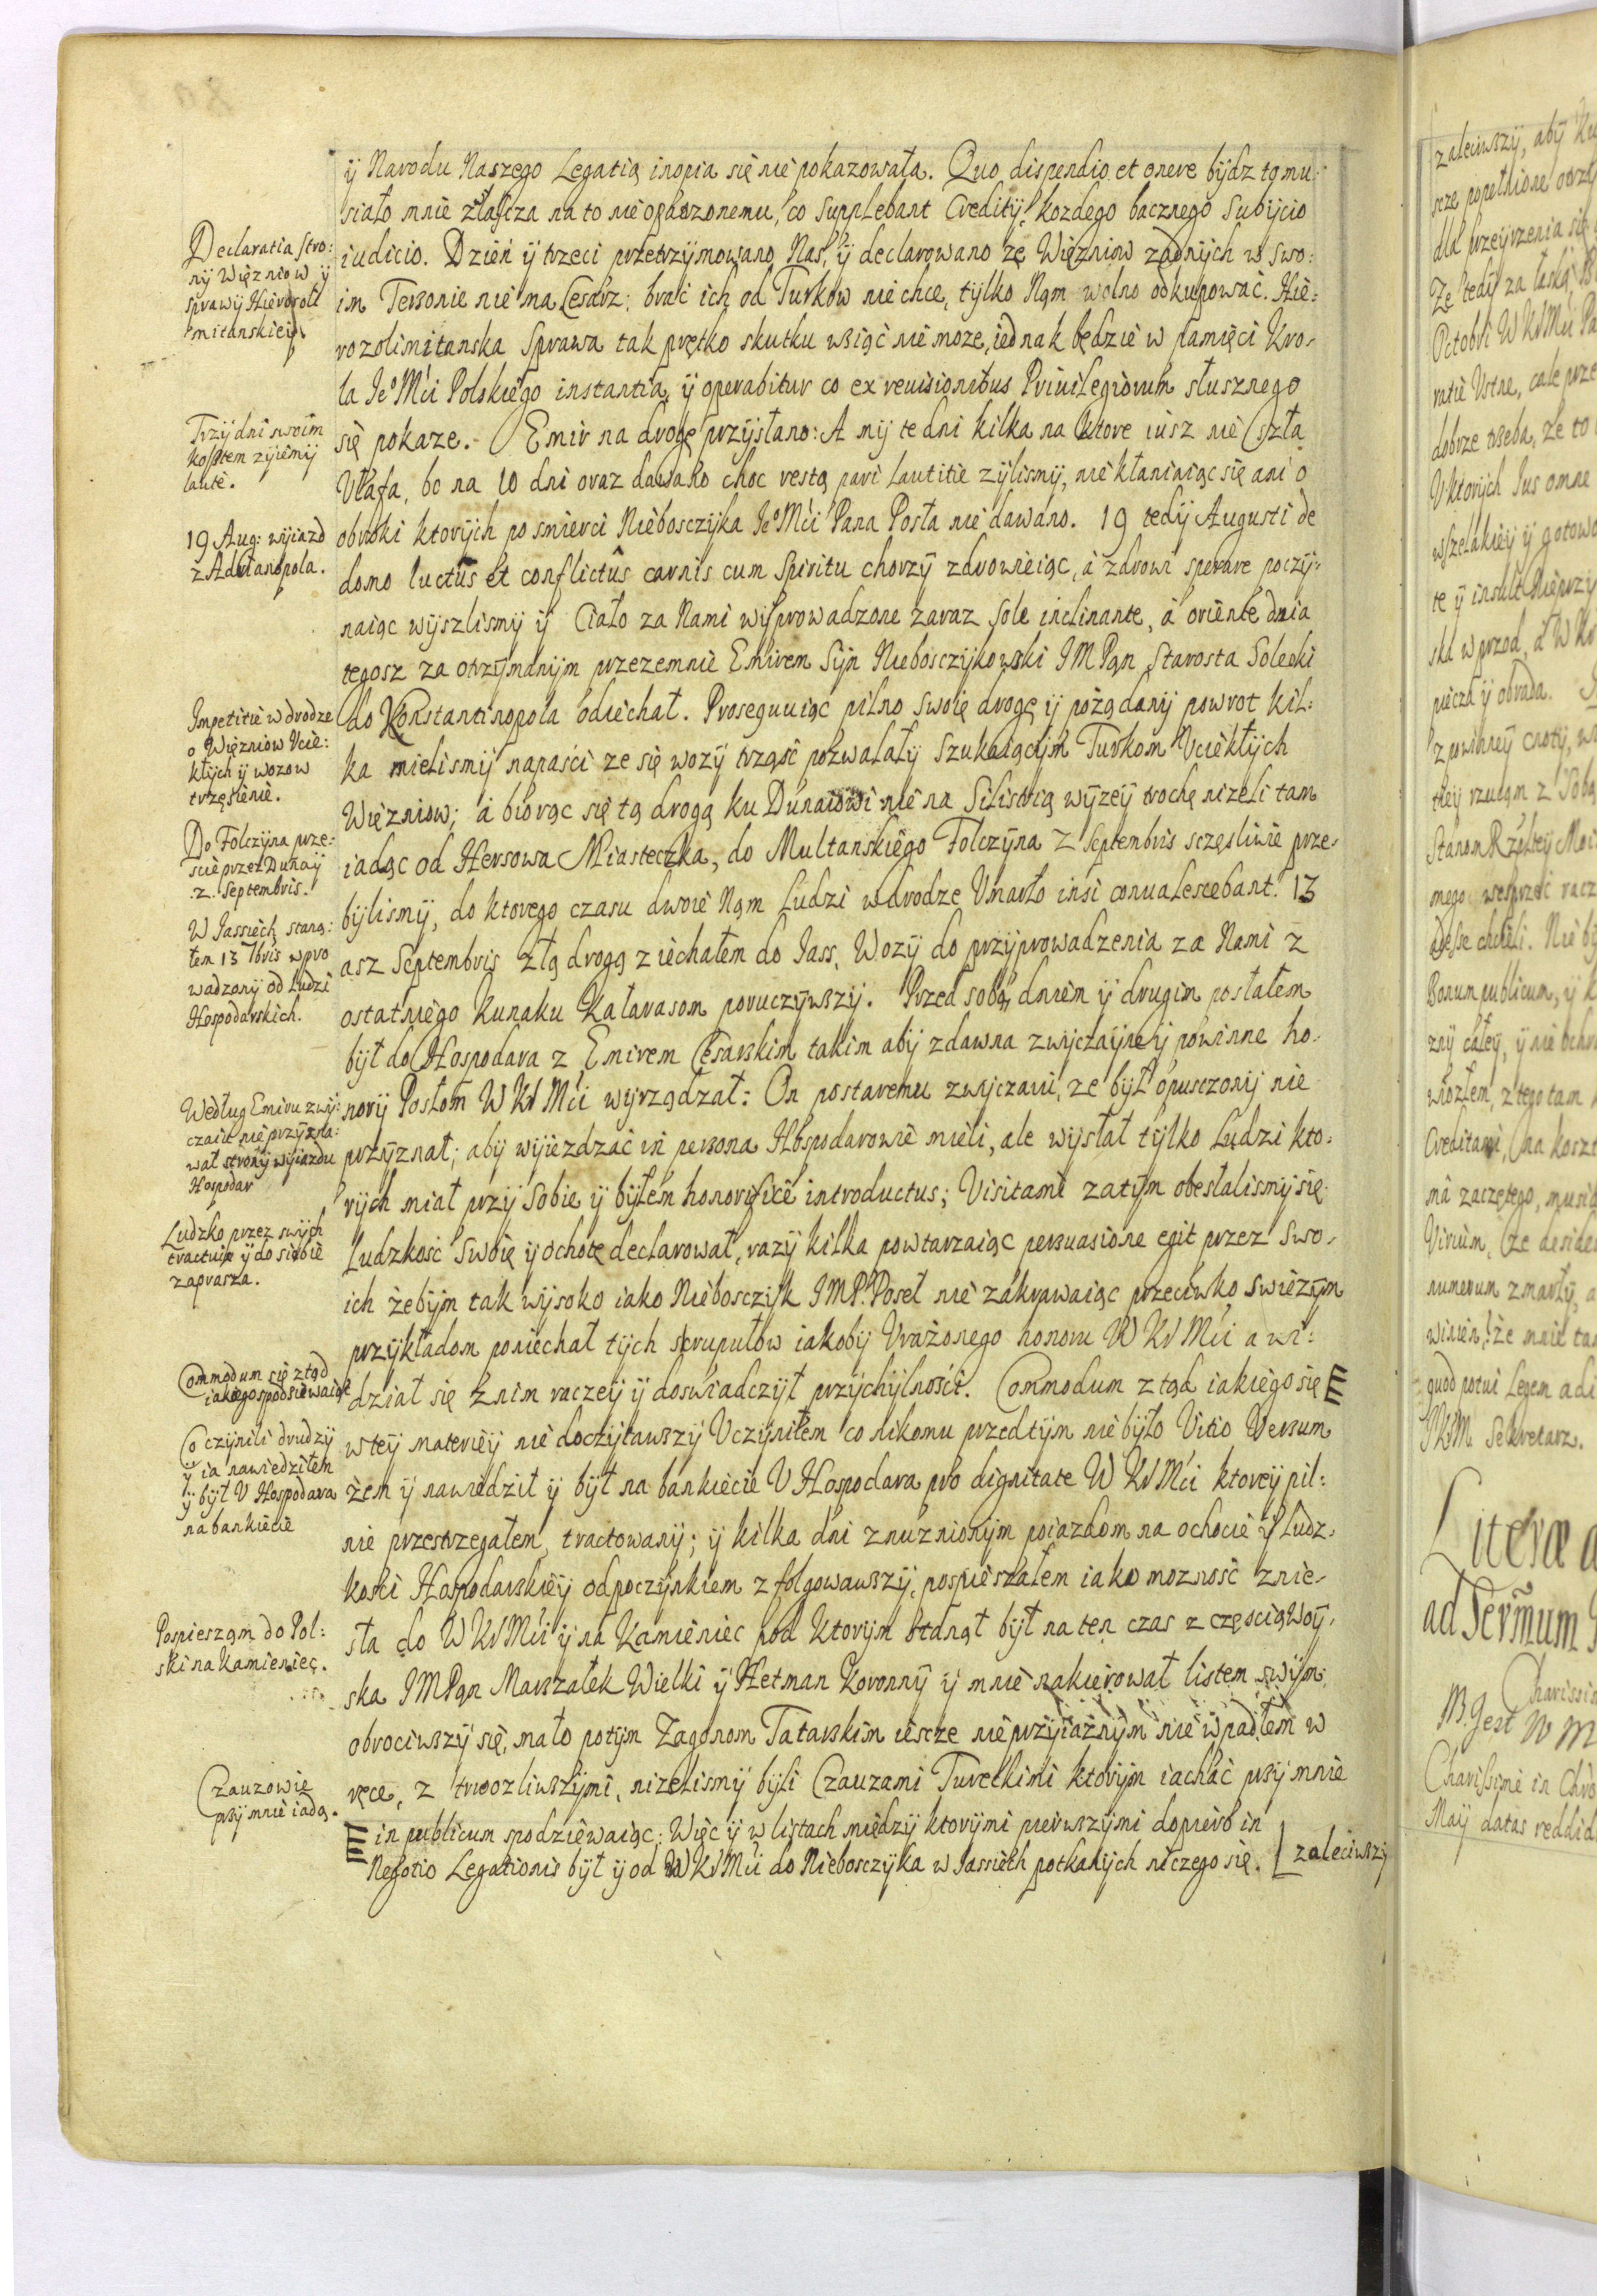 ÿ Narodu Naszego Legatią inopia się nie pokazowała. Quo dispendio et onere bÿdz tą mu:
siało mnie złascza na to nie opatrzonemu, co supplebant Creditÿ, kozdego bacznego subÿcio
iudicio. Dzień ÿ trzeci przetrzÿmowano Nas, ÿ declarowano ze Więzniow zadnÿch w swo:
im Tersonie nie ma Cesarz: brać ich od Turkow nie chce, tÿlko Nąm wolno odkupować. Hie:
rozolimitanska sprawa tak prętko skutku wziąć nie moze, iednak będzie w pamięci Kro-
la Je° Mći Polskiego instantia, ÿ operabitur co ex reuisionibus Priuilegiorum słusznego
się pokaze. Emir na drogę przÿsłano: A mÿ te dni kilka na ktore iusz nie szła
Ułafa, bo na 10 dni oraz dawano choc restą pari lautitie zÿlismÿ, nie kłaniaiąc się ani o
obroki ktorÿch po smierci Nieboscżÿka Je° Mći Pana Posła nie dawano. 19 tedÿ Augusti de
domo luctûs et conflictûs carnis cum spiritu chorzÿ zdrowieiąc, a zdrowi sperare poczÿ-
naiąc wÿszlismÿ ÿ Ciało za Nami wÿprowadzone zaraz sole inclinante, a oriente dnia
tegosz za otrzÿmanÿm przezemnie Emirem Sÿn Nieboscżÿkowski JM Pąn Starosta Solecki
do Konstantinopola odiechał. Proseguuiąc pilno swoię drogę ÿ poządanÿ powrot kil:
ka mielismÿ napaści ze się wozÿ trząść pozwalałÿ szukaiącÿm Turkom Uciekłÿch
Więzniow; a biorąc się tą drogą ku Dunaiowi nie na Silistrią wÿzeÿ trochę nizeli tam
iadąc od Hersowa Miasteczka, do Multanskiego Folczÿna 2 Septembris sczęsliwie prze-
bÿlismÿ, do ktorego czasu dwoie Nąm Ludzi w drodze Umarło insi conualescebant. 13
asz Septembris złą drogą ziechałem do Jass, Wozÿ do przÿprowadzenia za Nami z
ostatniego kunaku Kalarasom poruczÿwszÿ. Przed sobą dniem ÿ drugim posłałem
bÿł do Hospodara z Emirem Cesarskim takim abÿ zdawna zwÿczaÿne ÿ powinne ho-
norÿ Posłom W KJ Mći wÿrządzał: On postaremu zwÿczaiu, ze bÿł opusczonÿ nie
przÿznał; abÿ wÿiezdzać in persona Hospodarowie mieli, ale wÿsłał tÿlko Ludzi kto-
rÿch miał przÿ sobie ÿ bÿłem honorifice introductus; Visitami zatÿm obesłalismÿ się
Ludzkość swoię ÿ ochotę declarował, razÿ kilka powtarzaiąc persuasione egit przez swo-
ich żebÿm tak wÿsoko iako Nieboscżÿk JMP. Poseł nie zakrawaiąc przeciwko swiezÿm
przÿkładom poniechał tÿch skrupułow iakobÿ Urażonego honoru W KJ Mći a wi:
dział się znim raczeÿ ÿ doswiadczÿł przÿchÿlności. Commodum ztąd iakiego się
w teÿ materieÿ nie doczÿtawszÿ Uczÿniłem co nikomu przedtÿm nie bÿło Vitio Versum
żem ÿ nawiedził ÿ bÿł na bankiecie U Hospodara pro dignitate W KJ Mći ktoreÿ pil:
nie przestrzegałem, tractowanÿ; ÿ kilka dni znuznionÿm poiazdom na ochocie ÿ Ludz-
kości Hospodarskieÿ odpoczÿnkiem zfolgowawszÿ, pospieszałem iako mozność znie-
sła do W KJ Mći ÿ na Kamieniec pod ktorÿm stanął bÿł na ten czas z częscią Woÿ-
ska JM Pąn Marszałek Wielki ÿ Hetman Koronnÿ ÿ mnie nakierował listem swÿm,
obrociwszÿ się, mało potÿm Zagonom Tatarskim iescze nieprzÿiaznÿm nie wpadłem w
ręce, z trwozliwszÿmi, nizelismÿ bÿli Czauzami Tureckimi ktorÿm iachać przÿ mnie
in publicum spodziewaiąc: Więc ÿ w listach międzÿ ktorÿmi pierwszÿmi dopiero in
Negotio Legationis bÿł ÿ od W KJ Mći do Nieboscżÿka w Jassiech potkanÿch niczego się.
zaleciwszÿ
Declaratia stro:
nÿ Więzniow ÿ
sprawÿ Hierosoli
mitanskieÿ.
Trzÿ dni swoim
kosztem zÿiemÿ
laute.
19 Aug: wÿiazd
z Adrianopola.
Impetitie w drodze
o Więzniow Ucie:
kłÿch ÿ wozow
trzęsienie.
Do Folczÿna prze:
scie przez Dunaÿ
.2. Septembris.
W Jassiech staną:
łem 13 7bris wpro
wadzonÿ od Ludzi
Hospodarskich.
Według Emiru zwÿ:
czaiu nie przÿzna:
wał stronÿ wÿiazdu
Hospodar
Ludzko przez swÿch
tractuie ÿ do siebie
zaprasza.
Commodum się ztąd
iakiego spodziewaiąc
Co czÿnili drudzÿ
ÿ ia nawiedziłem
ÿ bÿł U Hospodara
na bankiecie
Pospiesząm do Pol:
ski na Kamieniec.
Czauzowie
przÿ mnie iadą.
zaleciwszÿ, abÿ
scze popełnione
dla przeÿrzenia się
Ze tedÿ za łaską
Octobri W KJ Mći
ratie Ustne, cale
dobrze trzeba, że to
U ktorÿch Ius omne
wszelakieÿ ÿ
te ÿ insult
ska w przod, a W
piecza ÿ obrada.
z powinneÿ cnotÿ,
Stanom Rzpłteÿ
mego wesprzeć racz
desse chcieli. Nie
Bonum publicum, ÿ
znÿ całeÿ, ÿ nie
wiozłem, z tego tam
Creditami, na koszt
ma zaczętego,
Virium, ze
numerum zmarłÿ,
winien, że mnie
quod potui Legem
JKM Sekretarz.
Literæ
ad Sermum
Charissime in
Maÿ datas reddid